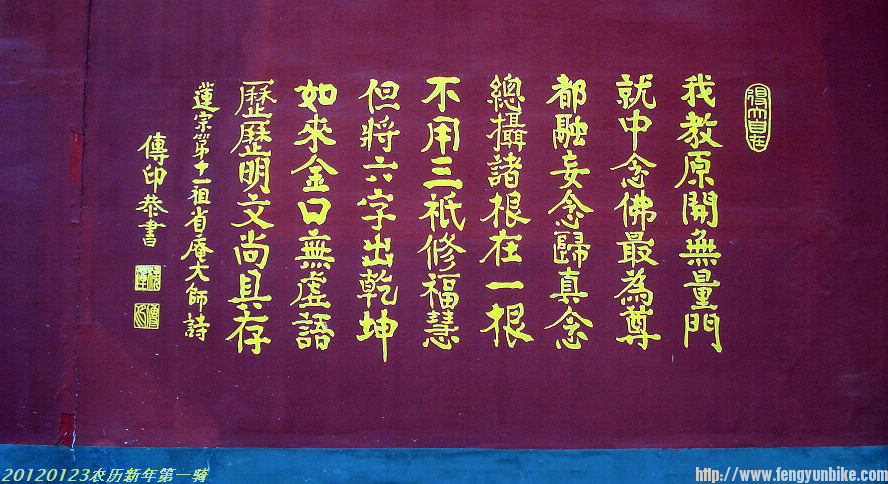 得大自在
我教原開無量門
就中念佛最為尊
都融妄念歸真念
總攝諸根在一根
不用三祇修福慧
但將六字出乾坤
如來金口無虛語
歷歷明文尚具存
蓮宗第十一祖省庵大師詩
傳印恭書
20120123农历新年第一骑
http://www.fengyunbike.com